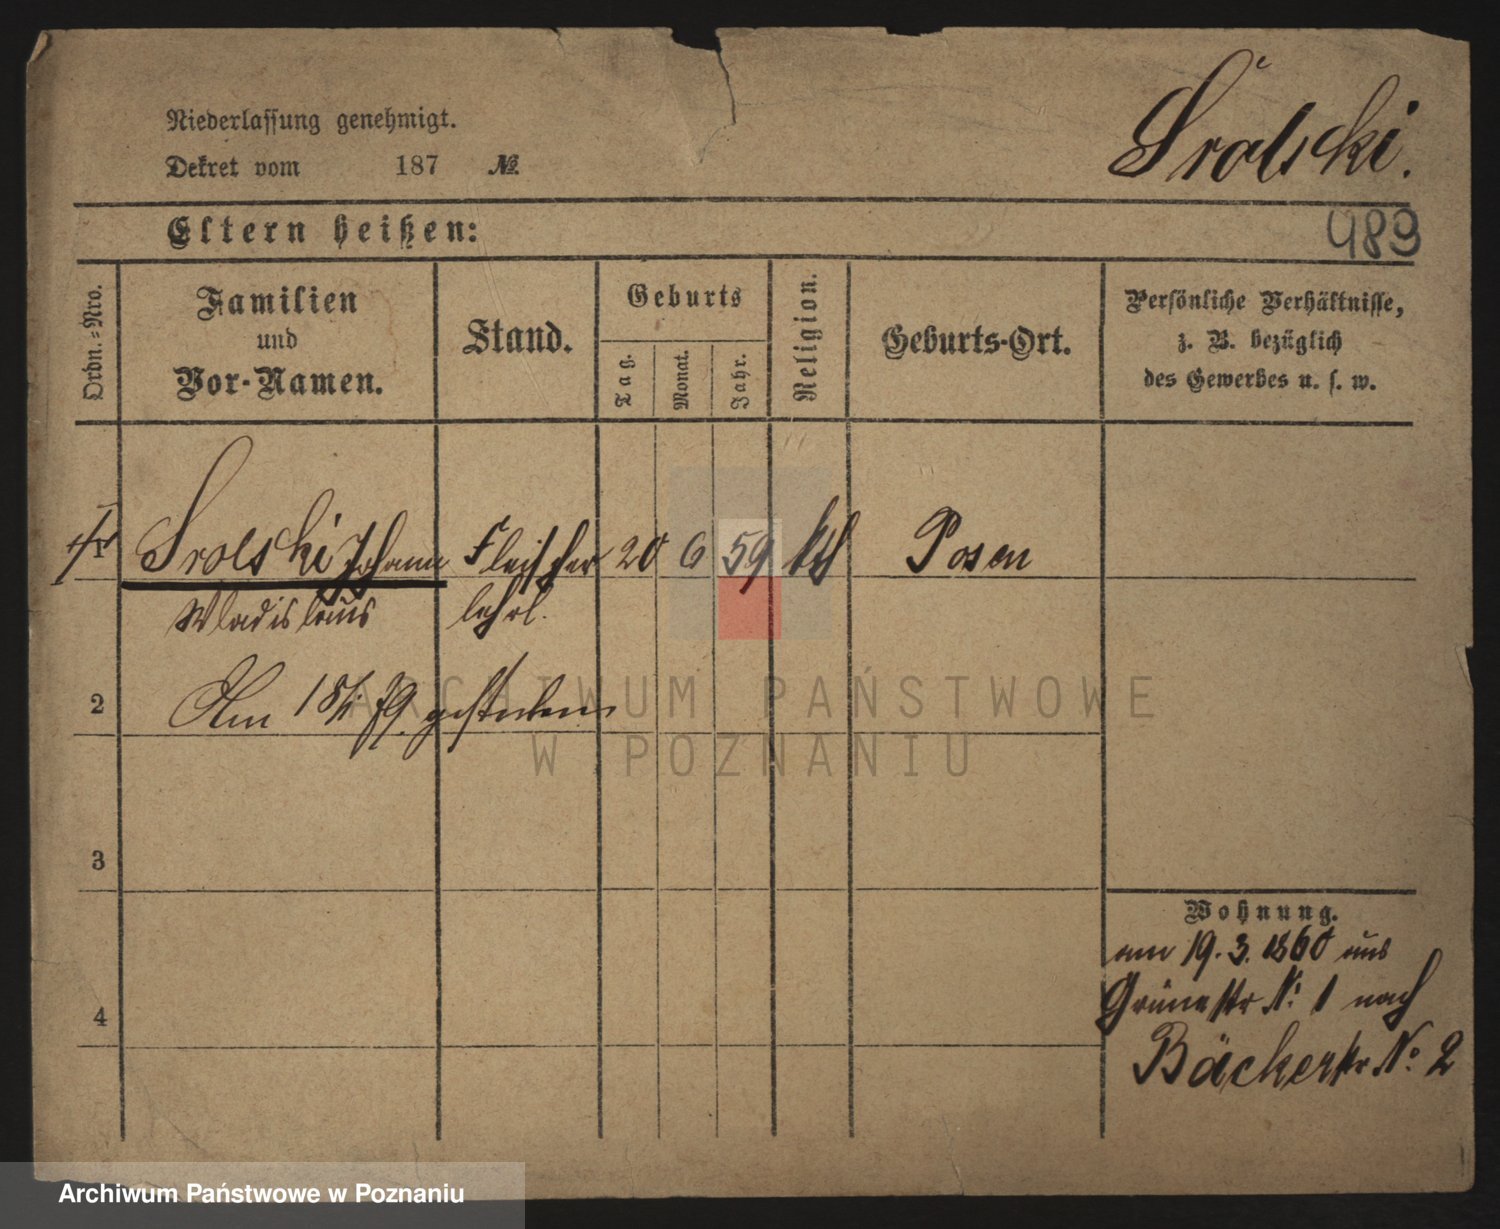 Niederlassung genehmigt.
Dekret vom 187 №
Srolski.
Eltern heißen:
989
Ordn.-Nro.
Familien
und
Vor-Namen.
Stand.
Geburts
Tag.
Monat.
Jahr.
Religion.
Geburts-Ort.
Persönliche Verhältnisse,
z. B. bezüglich
des Gewerbes u. s. w.
Srolski Johann Fleischer 20 6 59 kth Posen
Wladislaus lehrl.
2 Am 18/1 79. gestorben
3
4
Wohnung.
am 19. 3. 1860 aus
Grünestr No 1 nach
Bäckerstr No. 2
ARCHIWUM PAŃSTWOWE
W POZNANIU
Archiwum Państwowe w Poznaniu